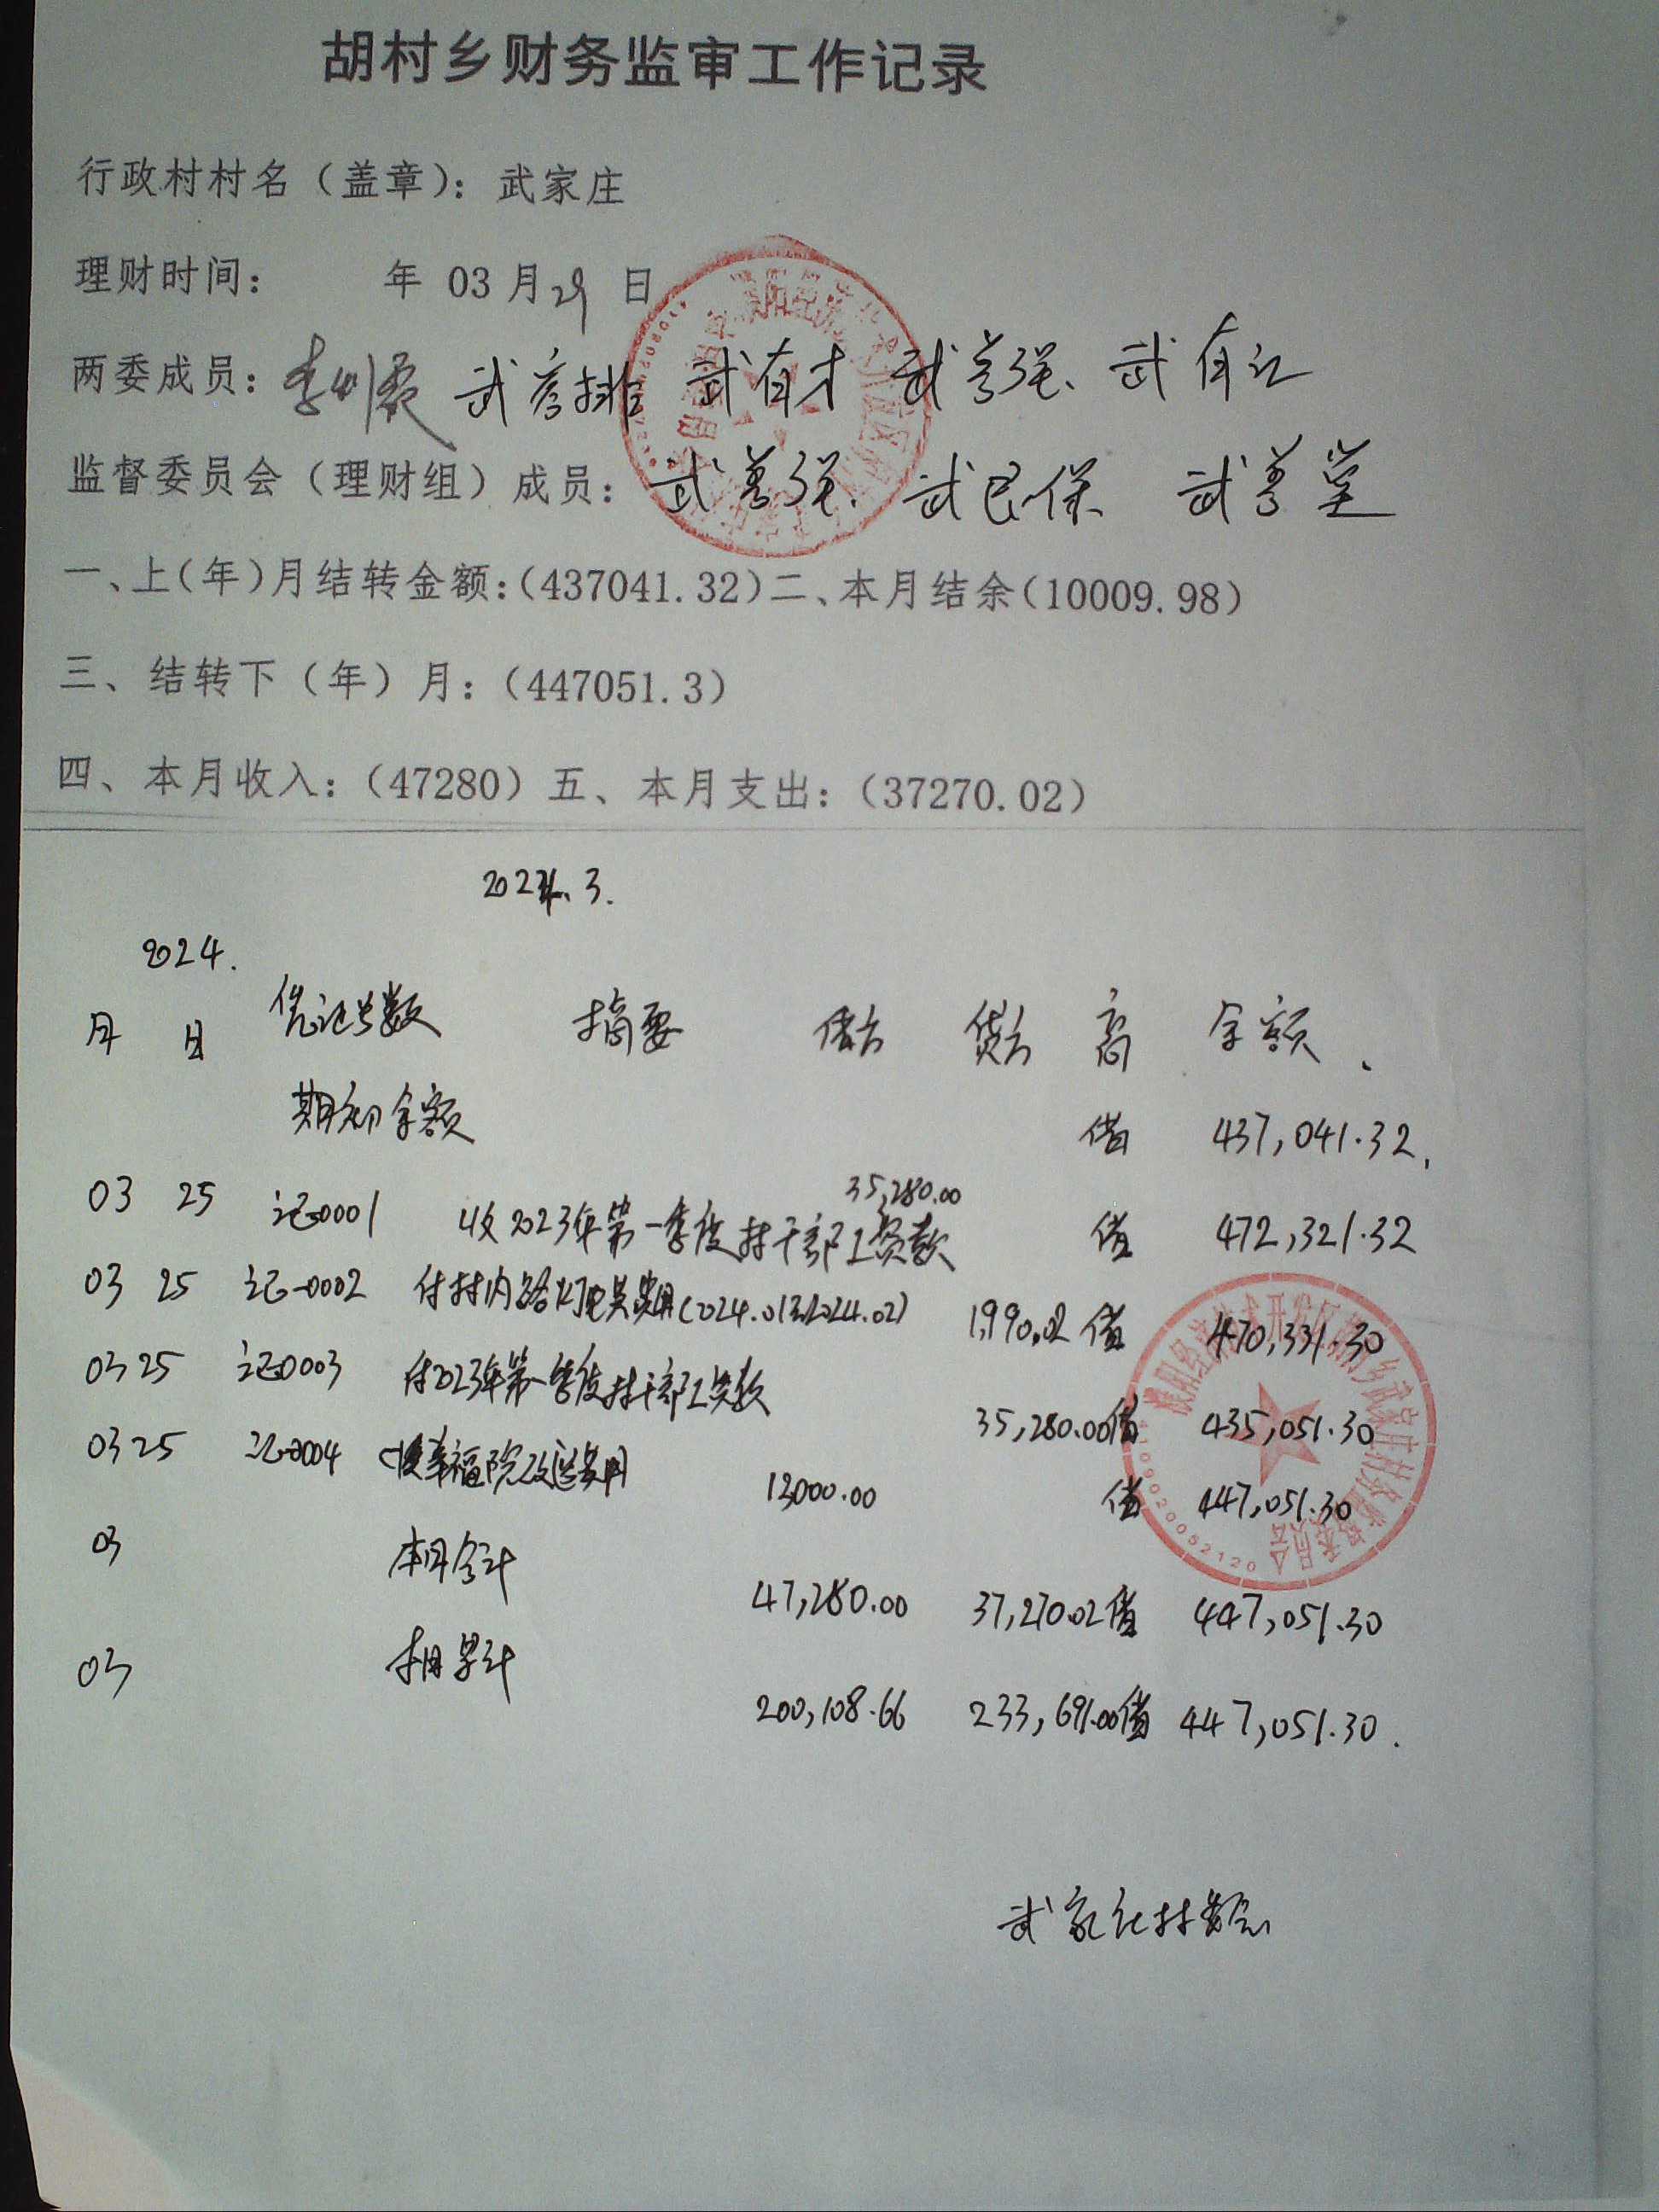 胡村乡财务监审工作记录
行政村村名（盖章）：武家庄
理财时间： 年 03 月 29 日
两委成员： 武彦排 武有才 武善强、武有江
监督委员会（理财组）成员：武善强、武民保 武善堂
一、上（年）月结转金额：（437041.32）二、本月结余（10009.98）
三、结转下（年）月：（447051.3）
四、本月收入：（47280）五、本月支出：（37270.02）
2024.3.
2024.
月 日 凭证号数 摘要 借方 贷方 余额
期初余额 借 437,041.32
03 25 记-0001 收2023年第一季度村干部工资款 35,280.00 借 472,321.32
03 25 记-0002 付村内路灯电费(2024.01至2024.02) 1,990.02 借 470,331.30
03 25 记-0003 付2023年第一季度村干部工资款 35,280.00 借 435,051.30
03 25 记-0004 幸福院改造费用 12000.00 借 447,051.30
03 本月合计 47,280.00 37,270.02 借 447,051.30
03 本月累计 200,108.66 233,691.00 借 447,051.30.
武家庄村委会